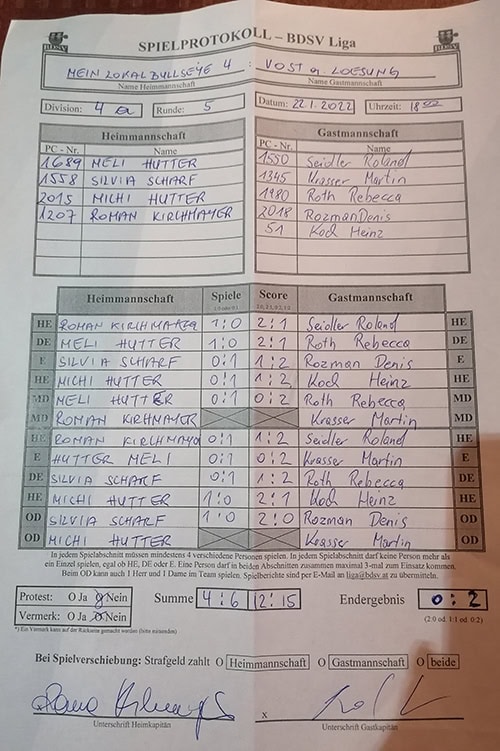 SPIELPROTOKOLL – BDSV Liga
MEIN LOKAL BULLSEYE 4 : VOST a LOESUNG
Name Heimmannschaft Name Gastmannschaft
Division: 4 a Runde: 5 Datum: 22.1.2022 Uhrzeit: 18 00
Heimmannschaft Gastmannschaft
PC - Nr. Name PC - Nr. Name
1689 MELI HUTTER 1550 Seidler Roland
1558 SILVIA SCHARF 1345 Krasser Martin
2015 MICHI HUTTER 1980 Roth Rebecca
1207 ROMAN KIRCHMAYER 2018 Rozman Denis
51 Koch Heinz
Heimmannschaft Spiele Score Gastmannschaft
HE ROMAN KIRCHMAYER 1:0 2:1 Seidler Roland HE
DE MELI HUTTER 1:0 2:1 Roth Rebecca DE
E SILVIA SCHARF 0:1 1:2 Rozman Denis E
HE MICHI HUTTER 0:1 1:2 Koch Heinz HE
MD MELI HUTTER 0:1 0:2 Roth Rebecca MD
MD ROMAN KIRCHMAYER Krasser Martin MD
HE ROMAN KIRCHMAYER 0:1 1:2 Seidler Roland HE
E HUTTER MELI 0:1 0:2 Krasser Martin E
DE SILVIA SCHARF 0:1 1:2 Roth Rebecca DE
HE MICHI HUTTER 1:0 2:1 Koch Heinz HE
OD SILVIA SCHARF 1:0 2:0 Rozman Denis OD
OD MICHI HUTTER Krasser Martin OD
In jedem Spielabschnitt müssen mindestens 4 verschiedene Personen spielen. In jedem Spielabschnitt darf keine Person mehr als
ein Einzel spielen, egal ob HE, DE oder E. Eine Person darf in beiden Abschnitten zusammen maximal 3-mal zum Einsatz kommen.
Beim OD kann auch 1 Herr und 1 Dame im Team spielen. Spielberichte sind per E-Mail an liga@bdsv.at zu übermitteln.
Protest: O Ja O Nein Summe 4:6 12:15 Endergebnis 0:2
Vermerk: O Ja O Nein (2:0 od. 1:1 od. 0:2)
*) Ein Vermerk kann auf der Rückseite gemacht werden (bitte eintragen)
Bei Spielverschiebung: Strafgeld zahlt O Heimmannschaft O Gastmannschaft O beide
x
Unterschrift Heimkapitän Unterschrift Gastkapitän